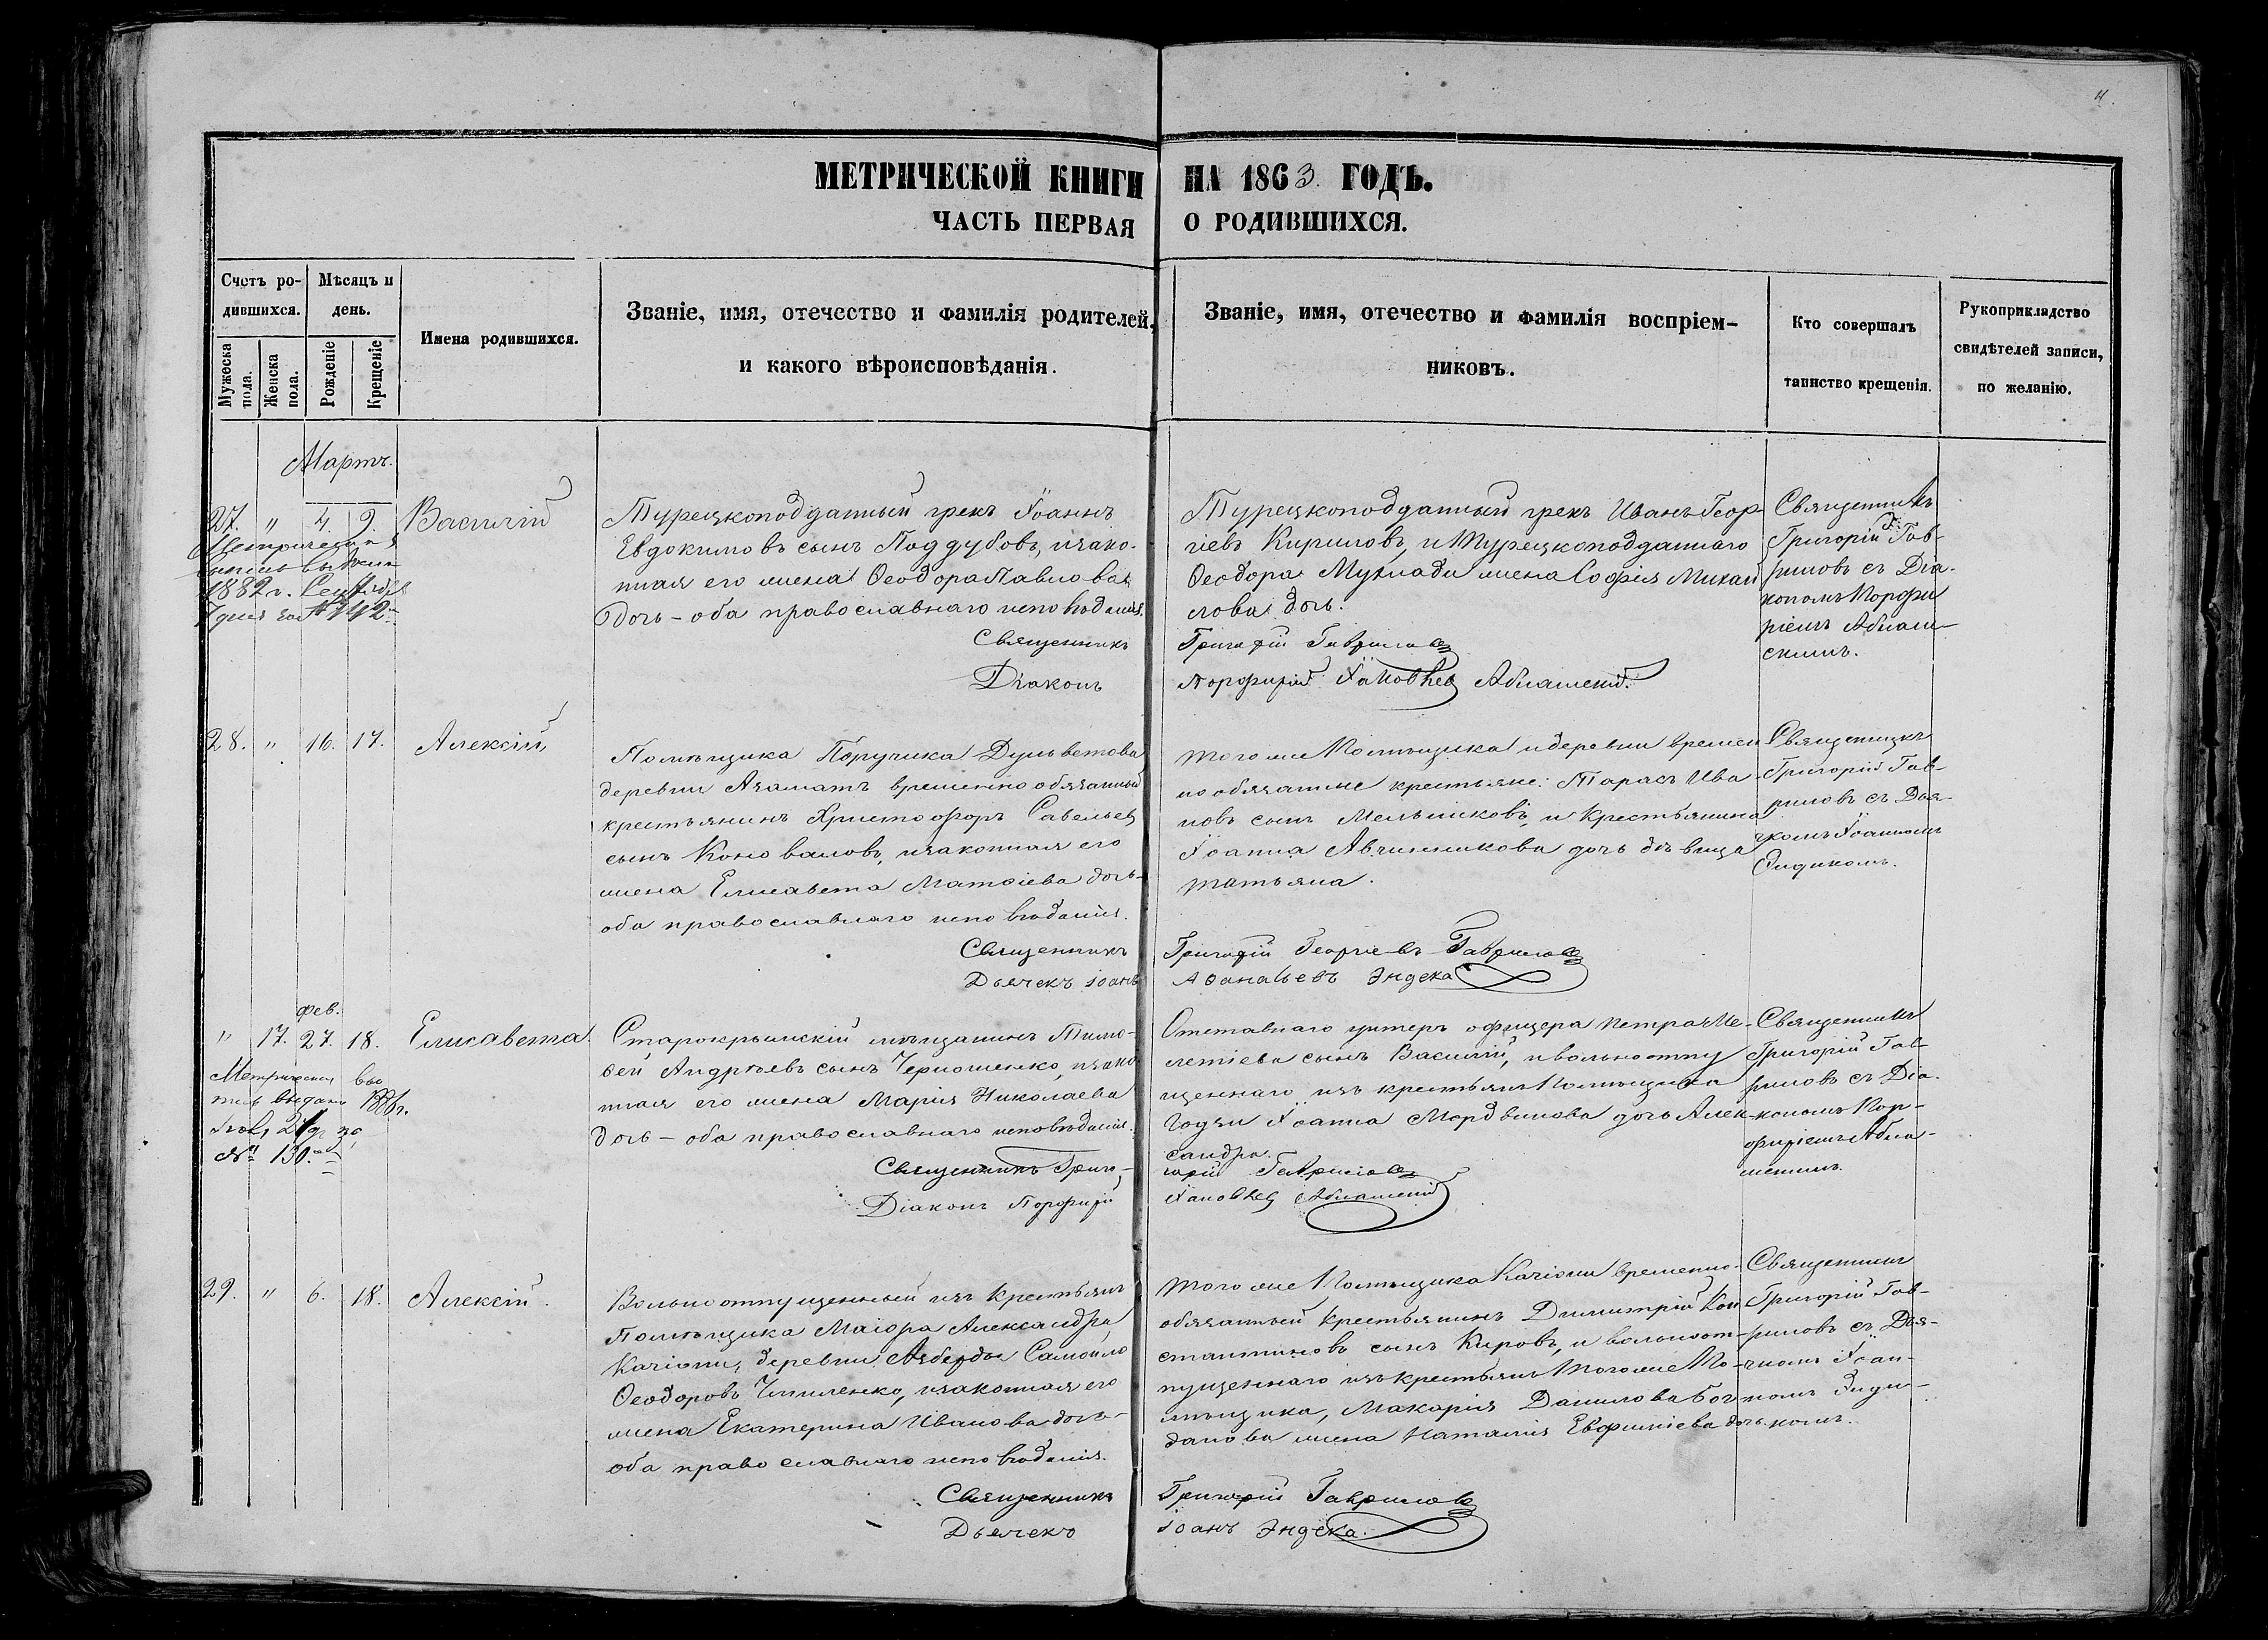 МЕТРИЧЕСКОЙ КНИГИ НА 1863 ГОДЪ.
ЧАСТЬ ПЕРВАЯ О РОДИВШИХСЯ.
Счетъ ро-
дившихся.
Мужеска пола.
Женска пола.
Мѣсяцъ и
день.
Рожденіе
Крещеніе
Имена родившихся.
Званіе, имя, отечество и фамилія родителей,
и какого вѣроисповѣданія.
Званіе, имя, отечество и фамилія воспріем-
никовъ.
Кто совершалъ
таинство крещенія.
Рукоприкладство
свидѣтелей записи,
по желанію.
Мартъ.
27. " 4. 9. Василій
1882 г.
Турецкоподданный грекъ Іоаннъ
Евдокимовъ сынъ Поддубовъ, изако-
нная его жена Ѳеодора Павлова
дочь - оба православнаго исповѣданія.
Священникъ
Діаконъ
Турецкоподданный грекъ Иванъ Геор-
гіевъ Кириловъ, и Турецкоподданнаго
Ѳеодора жена Софія Михаи
лова дочь.
Григорій Гавриловъ
Порфирій Іаковлев
Священникъ
Григорій Гав-
риловъ съ Діа-
кономъ Порфи
ріемъ
28. " 16. 17. Алексій
Помѣщика Поручика
деревни Азаматъ временно обязанный
крестьянинъ Христофоръ Савельев
сынъ Коноваловъ, изаконная его
жена Елисавета Матѳіева дочь-
оба православнаго исповѣданія.
Священникъ
Дьячекъ Іоанъ
того же Помѣщика и деревни времен
но обязанные крестьяне: Тарасъ Ива-
новъ сынъ Мельниковъ, и Крестьянина
Іоанна Авчинникова дочь дѣвица
Татьяна.
Григорій Георгіевъ Гавриловъ
Аѳанасьевъ Эндека
Священникъ
Григорій Гав-
риловъ съ Дья-
чкомъ Іоанномъ
фев.
" 17. 27. 18. Елисавета.
1886 г.
№ 130.
Старокрымскій мѣщанинъ Тимо-
ѳей Андреевъ сынъ Черношенко, изако
нная его жена Марія Николаева
дочь - оба православнаго исповѣданія.
Священникъ Григо-
Діаконъ Порфирій
Отставнаго унтеръ офицера Петра Ме-
летіева сынъ Василій, и вольноотпу
щеннаго изъ крестьянъ Помѣщика
Іоанна Мордвинова дочь Алек-
сандра.
горій Гавриловъ
Іаковлев
Священникъ
Григорій Гав-
риловъ съ Діа-
кономъ Пор-
фиріемъ
29. " 6. 18. Алексій.
Вольноотпущенный изъ крестьянъ
Помѣщика Маіора Александра
Качіони, деревни Самойло
Ѳеодоровъ изаконная его
жена Екатерина Иванова дочь-
оба православнаго исповѣданія.
Священникъ
Дьячекъ
того же Помѣщика Качіони временно-
обязанный Крестьянинъ Димитрій Кон
стантиновъ сынъ Кировъ, и вольноот-
пущеннаго изъ крестьянъ того же По-
мѣщика, Макарія Данилова Бог
данова жена Наталія Евфиміева дочь.
Григорій Гавриловъ
Іоанъ Эндека
Священникъ
Григорій Гав-
риловъ съ Дья-
чкомъ Іоан-
номъ